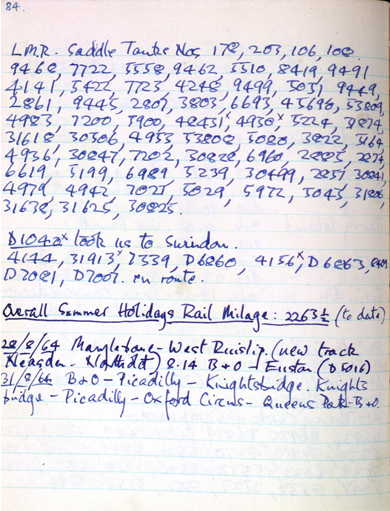 84.
L.M.R. Saddle Tanks Nos 178, 203, 106, 108.
9468, 7722, 5558, 9462, 5510, 8419, 9491
4141, 5422, 7723, 4248, 9499, 5031, 9449,
2861, 9445, 2807, 3803, 6693, 45690, 53809
4983, 7200, 5900, 48431ˣ, 4930ˣ, 5224, 31874
31618, 30506, 4953, 53808, 5080, 3822, 3164
4936, 30847, 7202, 30828, 6960, 2885, 2874
6619, 5199, 6989, 5239, 30499, 2857, 30841,
4979, 4942, 7027, 5029, 5972, 5043, 31806
31638, 31625, 30825.
D1040ˣ took us to Swindon.
4144, 31913ˣ, 7339, D6860, 4156ˣ, D6863, 8409
D7081, D7007. en route.
Overall Summer Holidays Rail Milage: 2263½ (to date)
28/8/64 Marylebone - West Ruislip. (new track
Neasden - Northolt) 8.14 B+O - Euston (D5016)
31/8/64 B+O - Picadilly - Knightsbridge. Knights
bridge - Picadilly - Oxford Circus - Queens Park - B+O.